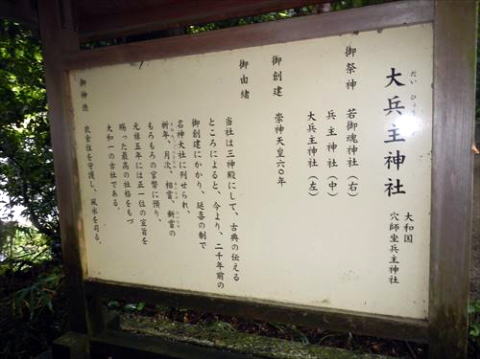 大兵主神社
だい ひょう
大和国
穴師坐兵主神社
御祭神 若御魂神社（右）
兵主神社（中）
大兵主神社（左）
御創建 崇神天皇六〇年
御由緒
当社は三神殿にして、古典の伝える
ところによると、今より、二千年前の
御創建にかかり、延喜の制で
名神大社に列せられ、
祈年、月次、相嘗、新嘗の
もろもろの官幣に預り、
元禄五年には正一位の宣旨を
賜った最高の社格をもつ
大和一の古社である。
御神徳 衣食住を守護し、風水を司る。